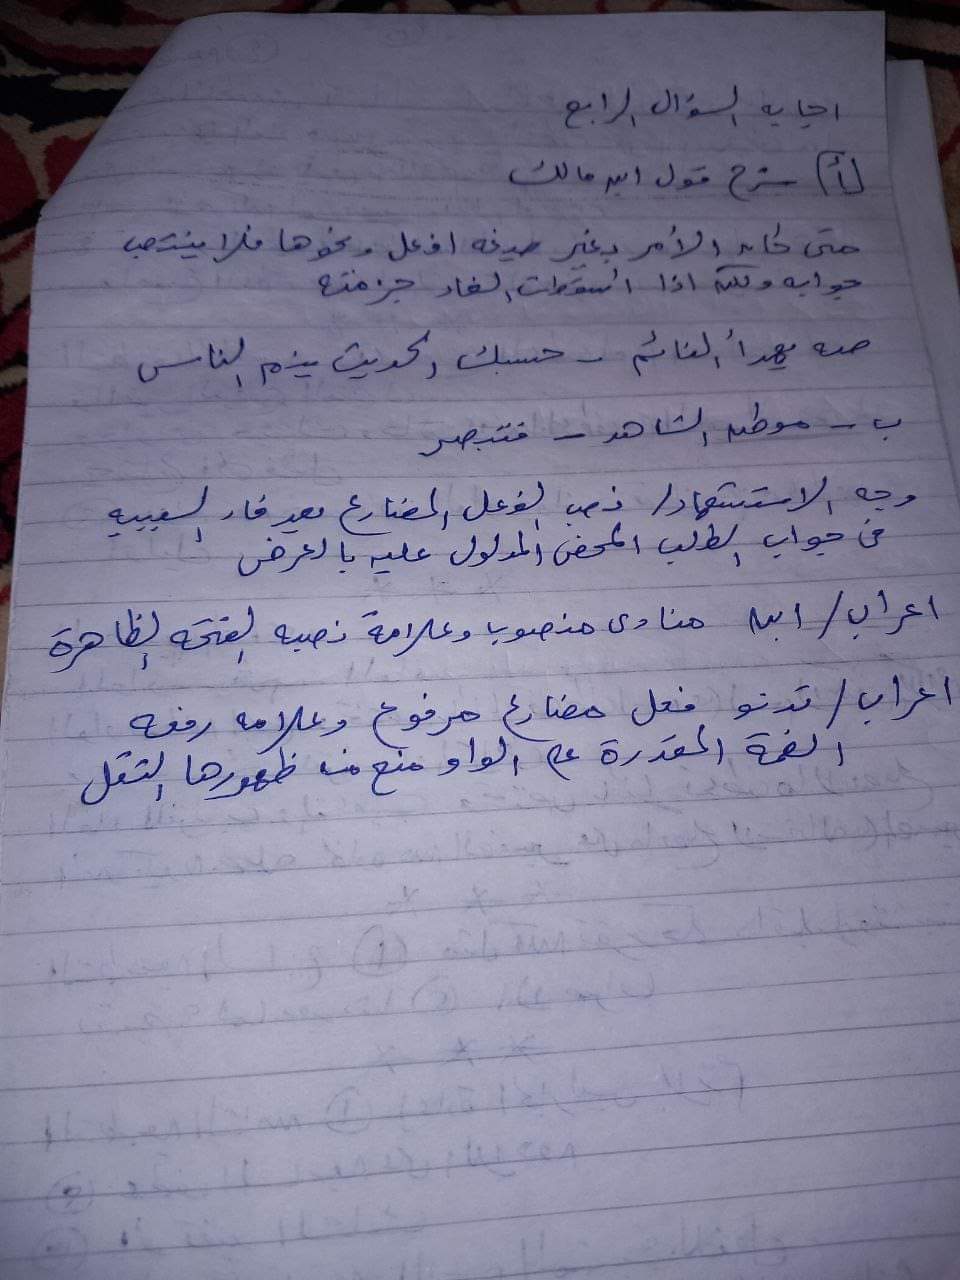 اجابه السؤال الرابع
(أ) شرح قول ابن مالك
متى كان الأمر بغير صيغه افعل ونحوها فلا ينتصب
جوابه ولكن اذا أسقطت الفاء جزمته
صه يهدأ النائم - حسبك الحديث ينم الناس
ب - موطن الشاهد - فتبصر
وجه الاستشهاد / نصب الفعل المضارع بعد فاء السببيه
فى جواب الطلب المحض المدلول عليه بالعرض
اعراب / ابن منادى منصوب وعلامة نصبه الفتحه الظاهرة
اعراب / تدنو فعل مضارع مرفوع وعلامه رفعه
الضمة المقدرة على الواو منع من ظهورها الثقل